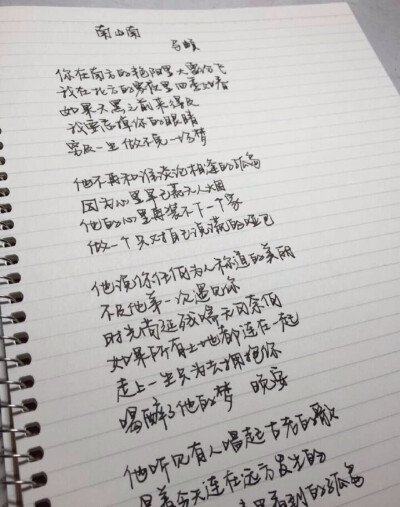 南山南
马頔
你在南方的艳阳里大雪纷飞
我在北方的寒夜里四季如春
如果天黑之前来得及
我要忘掉你的眼睛
穷及一生做不完一场梦
他不再和谁谈论相逢的孤岛
因为心里早已荒无人烟
他的心里再装不下一个家
做一个只对自己说谎的哑巴
他说你任何为人称道的美丽
不及他第一次遇见你
时光苟延残喘无可奈何
如果所有土地都连在一起
走上一生只为去拥抱你
喝醉了他的梦 晚安
他听见有人唱起古老的歌
唱着今天还在远方发生的
里看到的孤岛